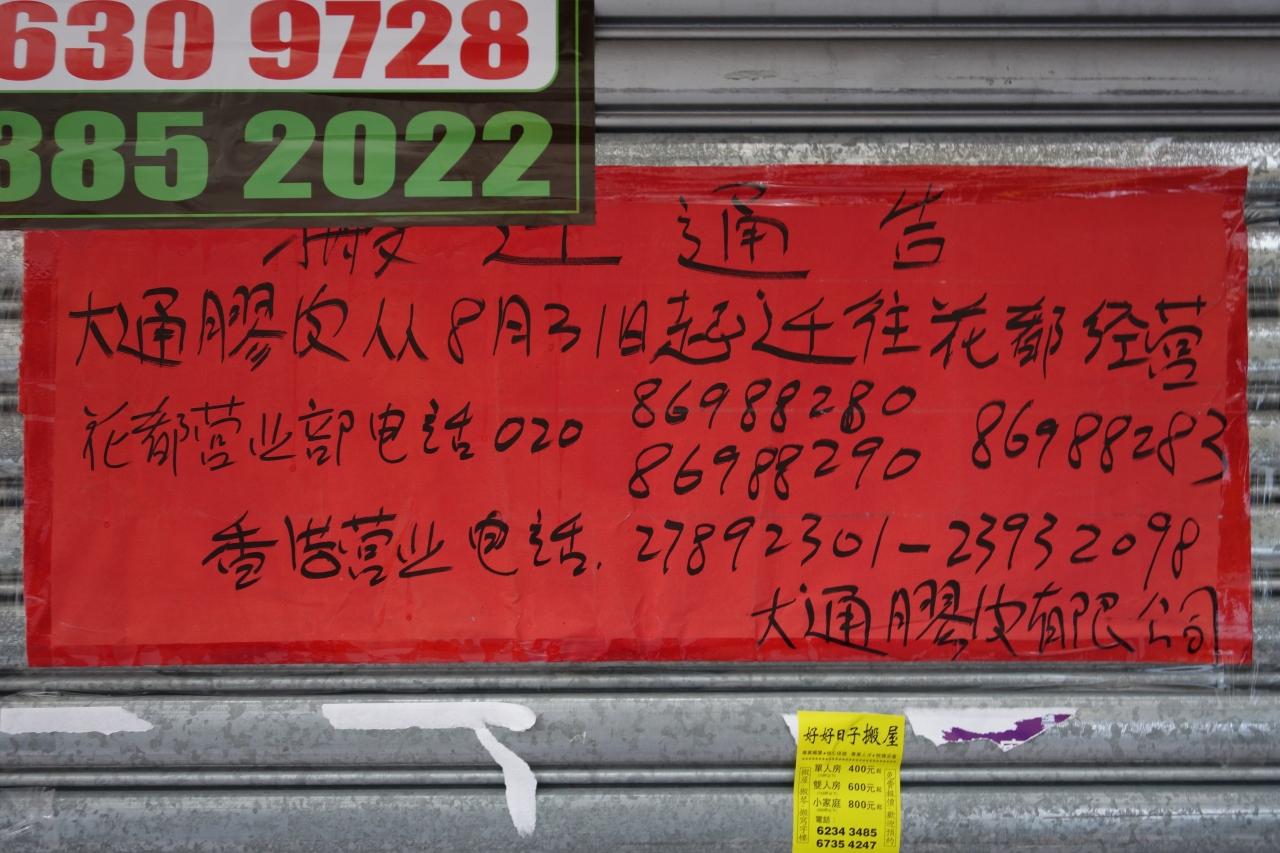 630 9728
385 2022
搬迁通告
大通膠皮从8月31日起迁往花都经营
花都营业部电话020 86988280 86988283
86988290
香港营业电话.27892301-23932098
大通膠皮有限公司
好好日子搬屋
單人房 400元起
雙人房 600元起
小家庭 800元起
電話:
6234 3485
6735 4247
搬屋 搬琴 搬寫字樓
免費報價 歡迎預約